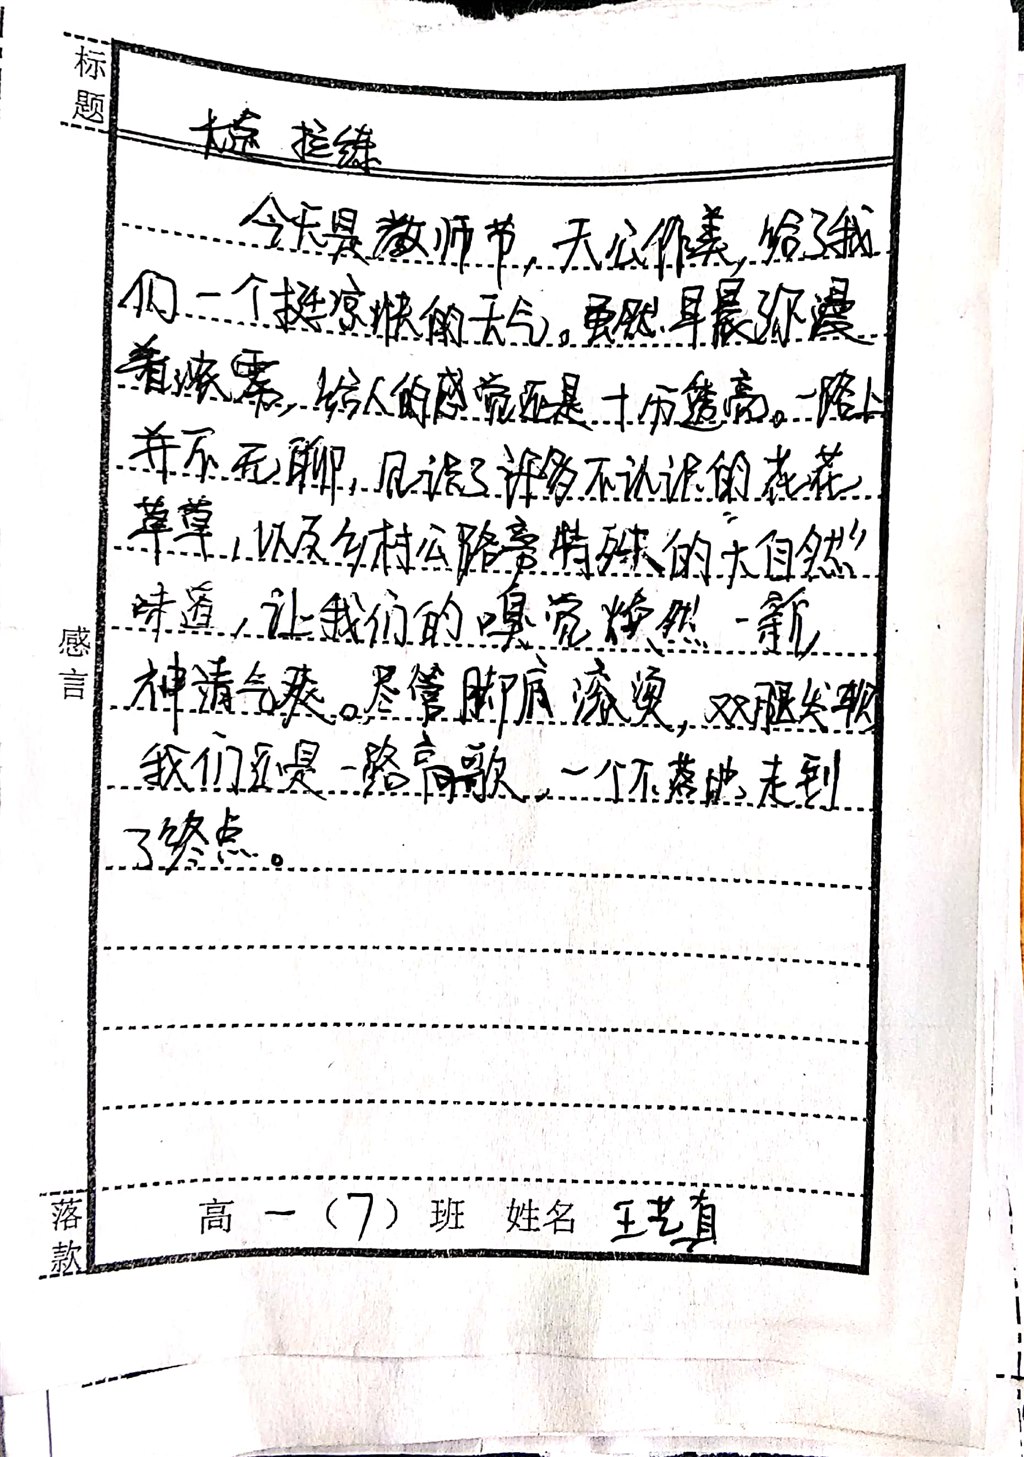 标题
拉练
今天是教师节,天公作美,给了我
们一个挺凉快的天气。虽然早晨弥漫
着浓雾,给人的感觉还是十分高。一路上
并不无聊,见识了许多不认识的花花
草草,以及乡村公路旁特殊的“大自然”
味道,让我们的嗅觉焕然一新,
神清气爽。尽管脚底滚烫,双腿发软
我们还是一路高歌,一个不落地走到
了终点。
感言
落款
高一(7)班 姓名 王艺真